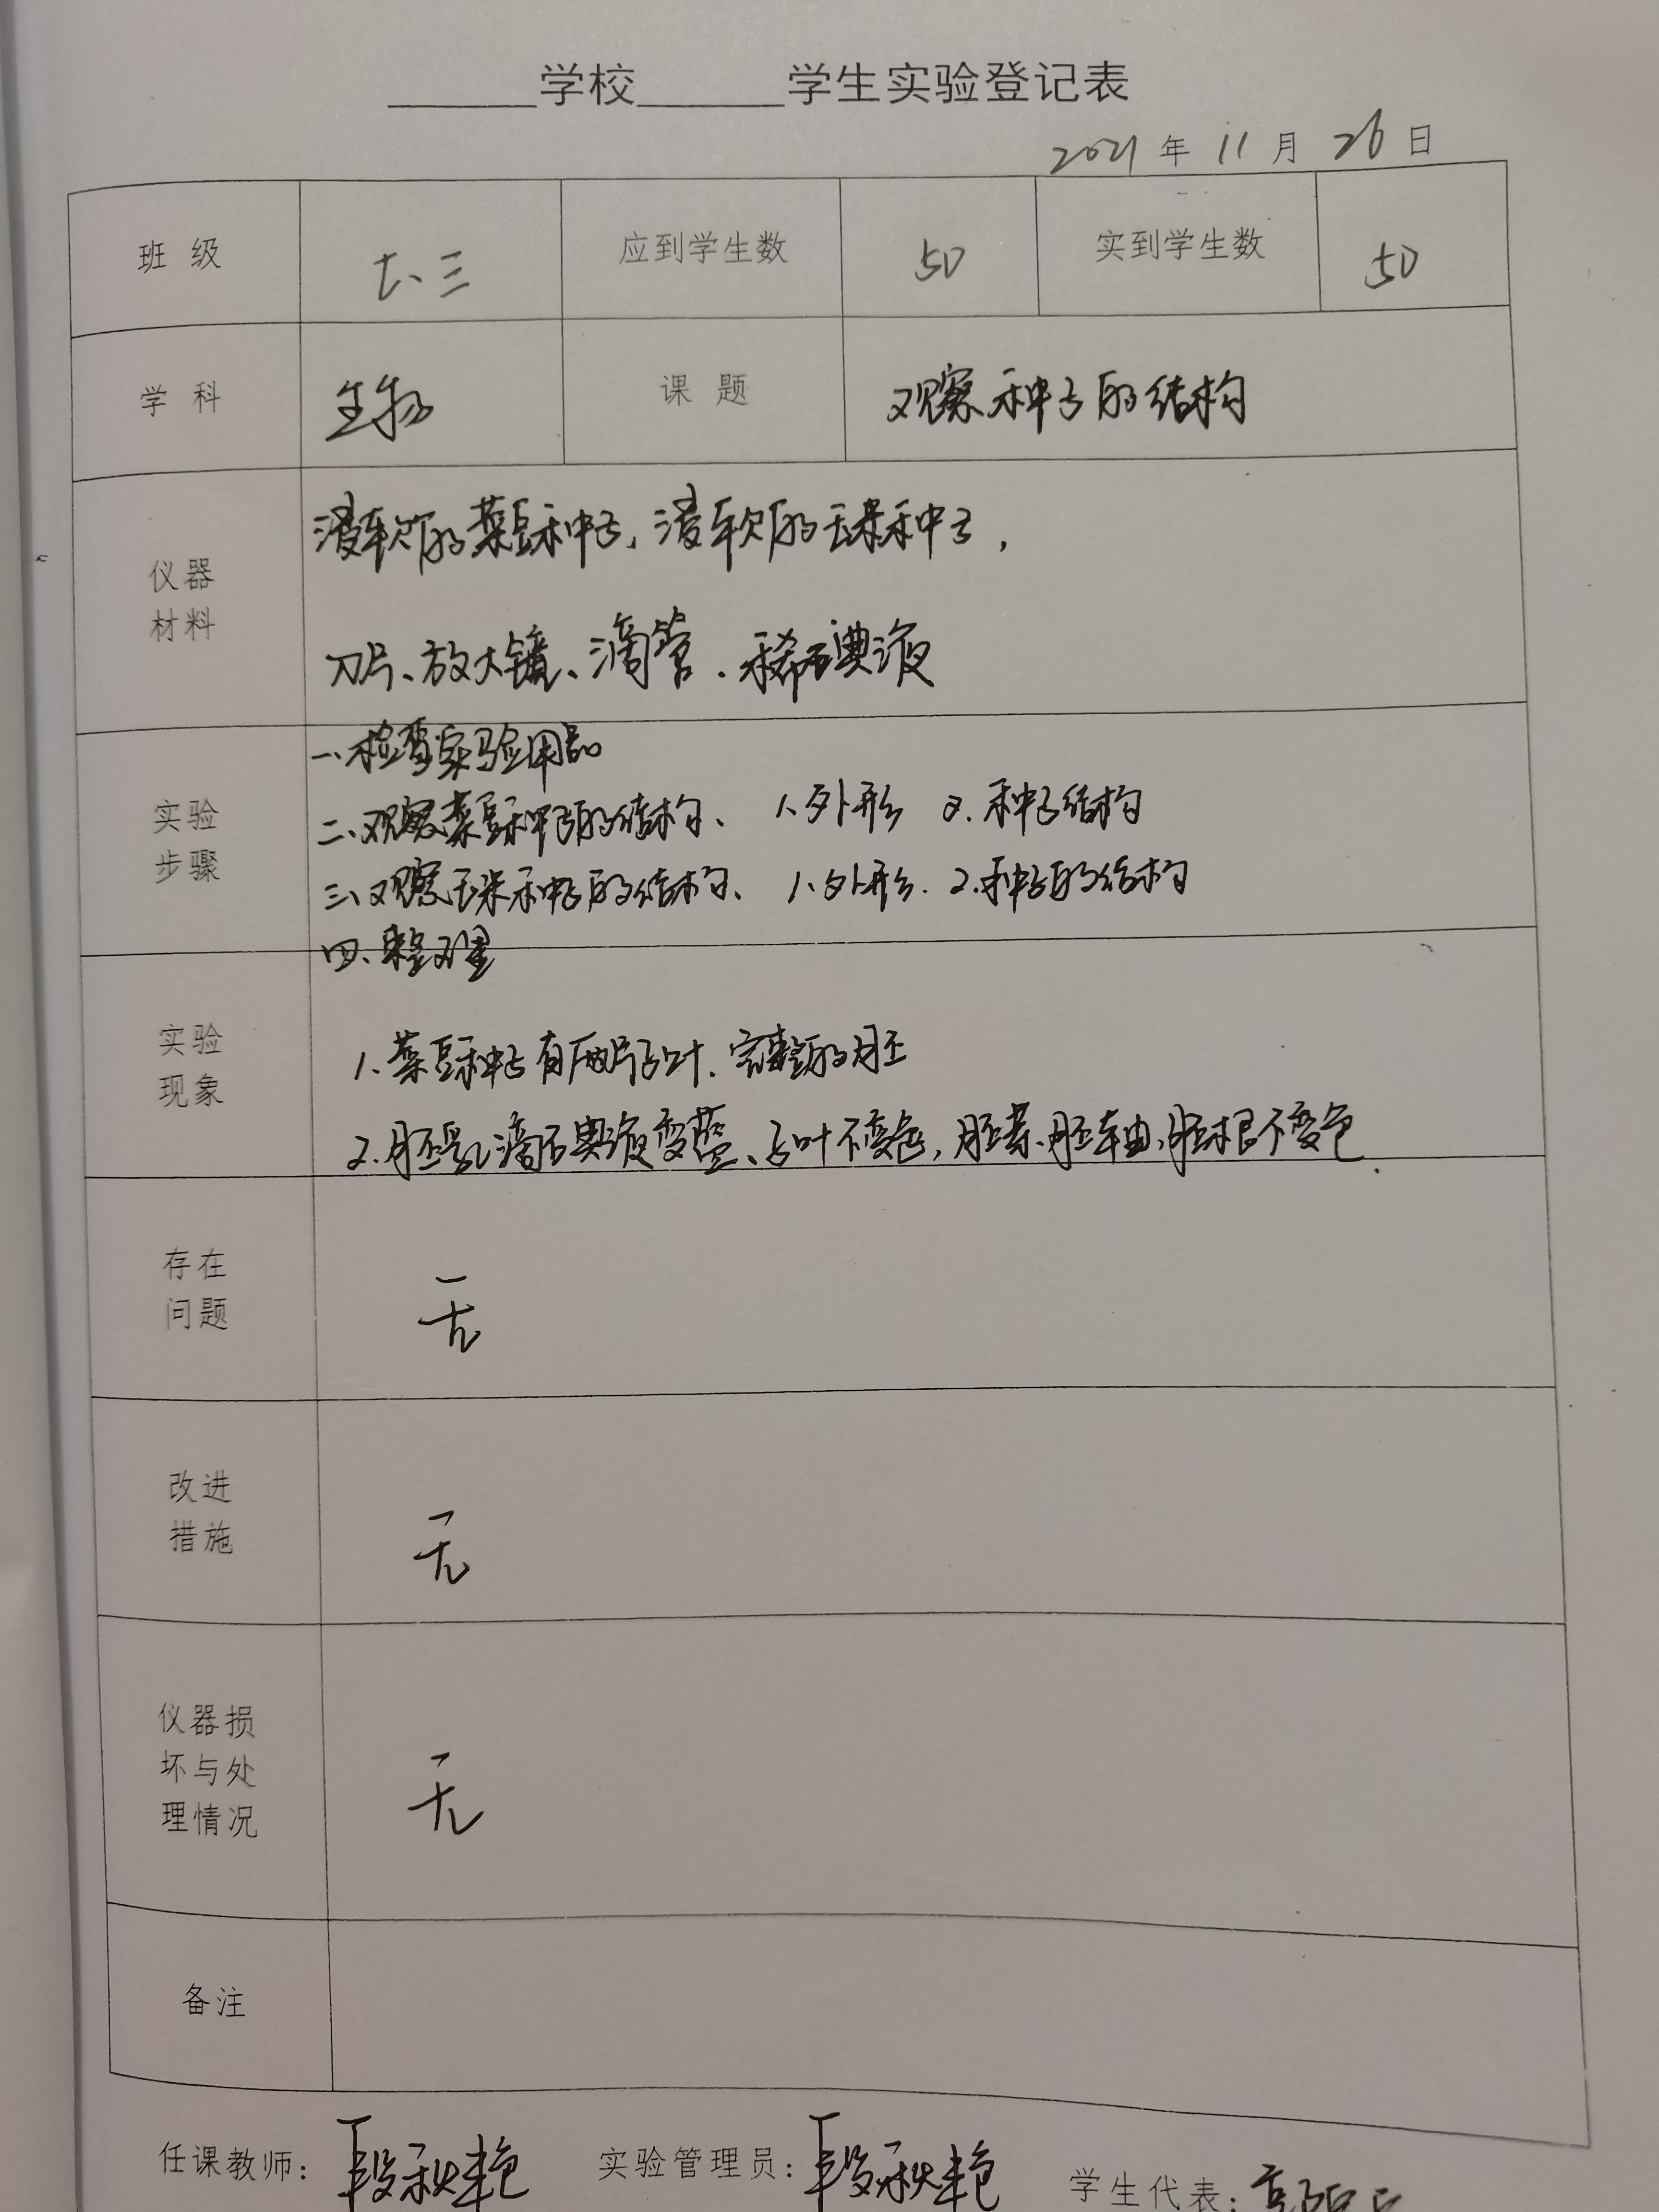 ______学校______学生实验登记表
2021 年 11 月 26 日
班 级 七、三 应到学生数 50 实到学生数 50
学 科 生物 课 题 观察种子的结构
仪器
材料
浸软的菜豆种子,浸软的玉米种子,
刀片、放大镜、滴管.稀碘液
实验
步骤
一、检查实验用品
二、观察菜豆种子的结构、 1、外形 2.种子结构
三、观察玉米种子的结构、 1、外形. 2.种子的结构
四、整理
实验
现象
1、菜豆种子有两片子叶.完整的胚
2.胚乳滴碘液变蓝、子叶不变色,胚芽、胚轴、胚根不变色.
存在
问题
无
改进
措施
无
仪器损
坏与处
理情况
无
备注
任课教师:段秋艳 实验管理员:段秋艳 学生代表: